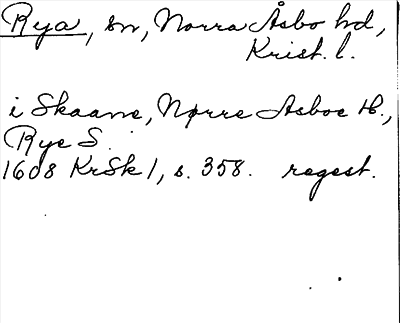 Rya, sn, Norra Åsbo hd,
Krist. l.
i Skaane, Nørre Asboe H.,
Rye S.
1608 KrSk 1, s. 358. regest.